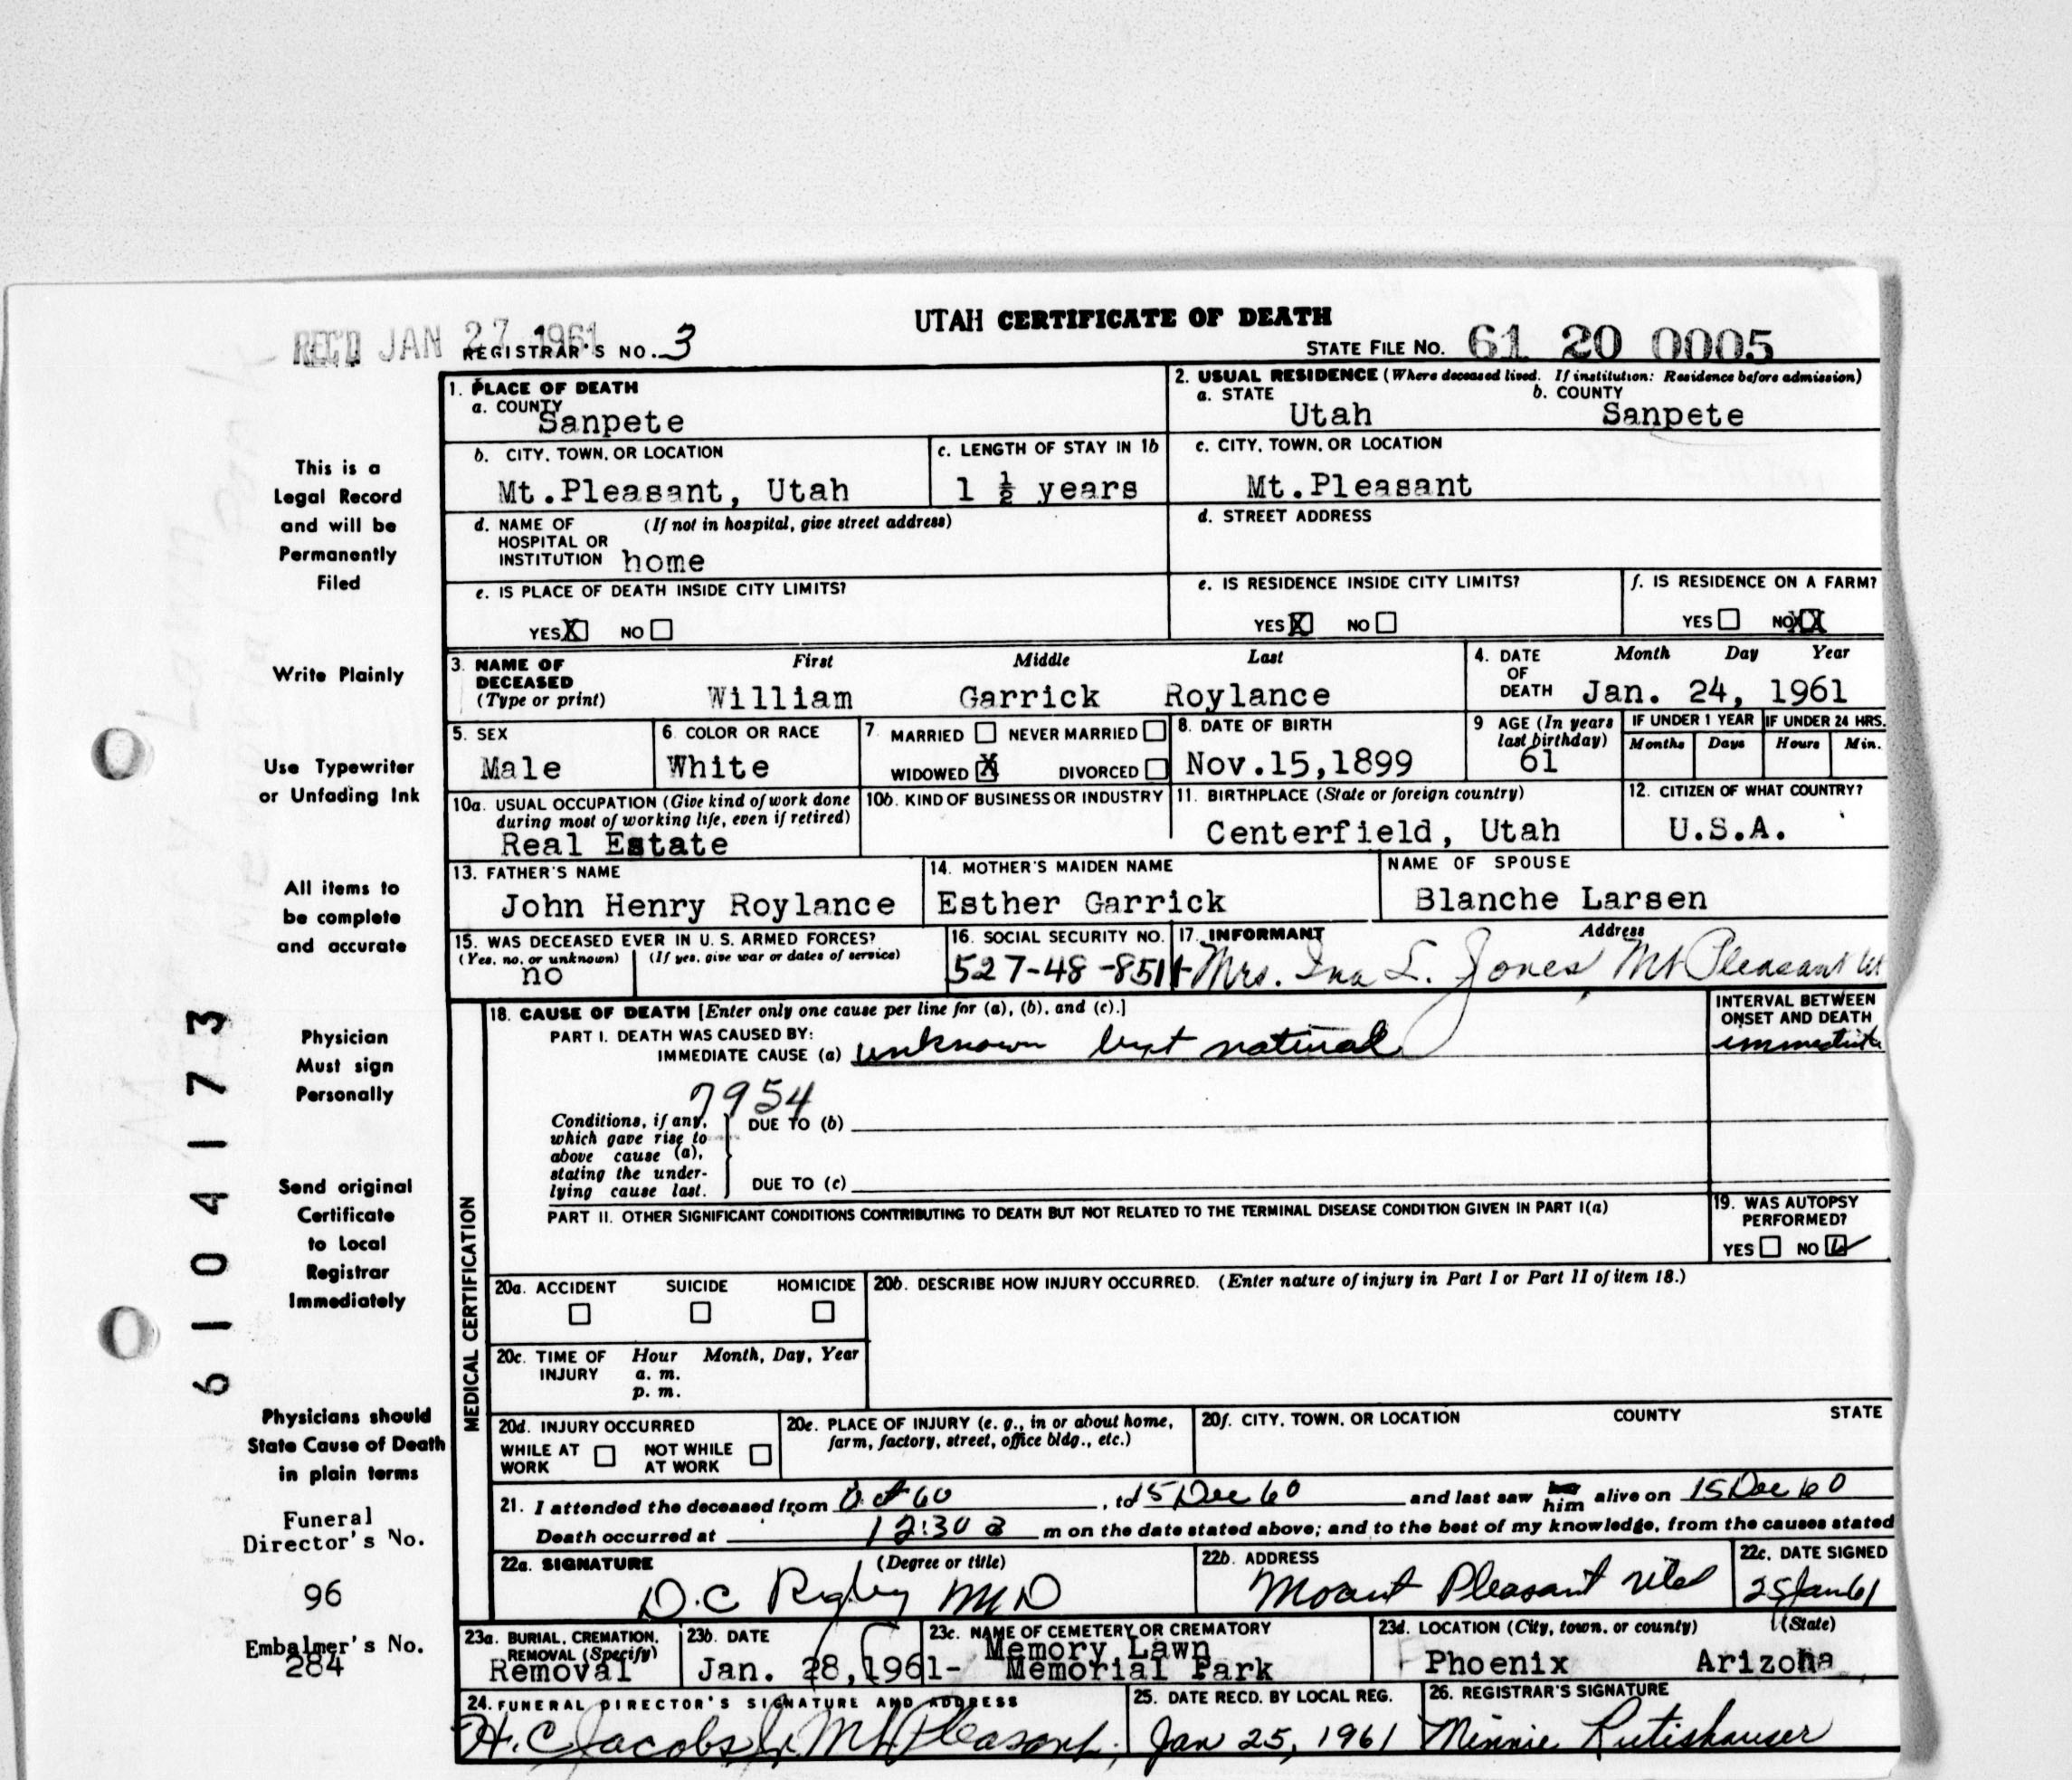 UTAH CERTIFICATE OF DEATH
REC'D JAN 27 1961
REGISTRAR'S NO. 3
STATE FILE No. 61 20 0005
1. PLACE OF DEATH
a. COUNTY
Sanpete
2. USUAL RESIDENCE (Where deceased lived. If institution: Residence before admission)
a. STATE b. COUNTY
Utah Sanpete
b. CITY, TOWN, OR LOCATION
Mt.Pleasant, Utah
c. LENGTH OF STAY IN 1b
1 ½ years
c. CITY, TOWN, OR LOCATION
Mt.Pleasant
d. NAME OF (If not in hospital, give street address)
HOSPITAL OR
INSTITUTION home
d. STREET ADDRESS
e. IS PLACE OF DEATH INSIDE CITY LIMITS?
YES X NO
e. IS RESIDENCE INSIDE CITY LIMITS?
YES X NO
f. IS RESIDENCE ON A FARM?
YES NO XX
3. NAME OF First Middle Last
DECEASED
(Type or print) William Garrick Roylance
4. DATE Month Day Year
OF
DEATH Jan. 24, 1961
5. SEX
Male
6. COLOR OR RACE
White
7. MARRIED NEVER MARRIED
WIDOWED X DIVORCED
8. DATE OF BIRTH
Nov.15,1899
9 AGE (In years
last birthday)
61
IF UNDER 1 YEAR
Months Days
IF UNDER 24 HRS.
Hours Min.
10a. USUAL OCCUPATION (Give kind of work done
during most of working life, even if retired)
Real Estate
10b. KIND OF BUSINESS OR INDUSTRY
11. BIRTHPLACE (State or foreign country)
Centerfield, Utah
12. CITIZEN OF WHAT COUNTRY?
U.S.A.
13. FATHER'S NAME
John Henry Roylance
14. MOTHER'S MAIDEN NAME
Esther Garrick
NAME OF SPOUSE
Blanche Larsen
15. WAS DECEASED EVER IN U. S. ARMED FORCES?
(Yes, no, or unknown) (If yes, give war or dates of service)
no
16. SOCIAL SECURITY NO.
527-48-8511
17. INFORMANT Address
Mrs. Ina L. Jones Mt Pleasant Ut
MEDICAL CERTIFICATION
18. CAUSE OF DEATH [Enter only one cause per line for (a), (b), and (c).]
PART I. DEATH WAS CAUSED BY:
IMMEDIATE CAUSE (a) unknown but natural
INTERVAL BETWEEN
ONSET AND DEATH
immediate
7954
Conditions, if any,
which gave rise to
above cause (a),
stating the under-
lying cause last.
DUE TO (b)
DUE TO (c)
PART II. OTHER SIGNIFICANT CONDITIONS CONTRIBUTING TO DEATH BUT NOT RELATED TO THE TERMINAL DISEASE CONDITION GIVEN IN PART I(a)
19. WAS AUTOPSY
PERFORMED?
YES NO
20a. ACCIDENT SUICIDE HOMICIDE
20b. DESCRIBE HOW INJURY OCCURRED. (Enter nature of injury in Part I or Part II of item 18.)
20c. TIME OF Hour Month, Day, Year
INJURY a. m.
p. m.
20d. INJURY OCCURRED
WHILE AT WORK NOT WHILE AT WORK
20e. PLACE OF INJURY (e. g., in or about home,
farm, factory, street, office bldg., etc.)
20f. CITY, TOWN, OR LOCATION COUNTY STATE
21. I attended the deceased from Oct 60, to 15 Dec 60 and last saw him alive on 15 Dec 60
Death occurred at 12:30 a m on the date stated above; and to the best of my knowledge, from the causes stated
22a. SIGNATURE (Degree or title)
D.C Rigby MD
22b. ADDRESS
Mount Pleasant Utah
22c. DATE SIGNED
25 Jan 61
23a. BURIAL, CREMATION,
REMOVAL (Specify)
Removal
23b. DATE
Jan. 28, 1961-
23c. NAME OF CEMETERY OR CREMATORY
Memory Lawn
Memorial Park
23d. LOCATION (City, town, or county) (State)
Phoenix Arizona
24. FUNERAL DIRECTOR'S SIGNATURE AND ADDRESS
H. C Jacobs Jr. Mt. Pleasant.
25. DATE RECD. BY LOCAL REG.
Jan 25, 1961
26. REGISTRAR'S SIGNATURE
Minnie Rutishauser
This is a
Legal Record
and will be
Permanently
Filed
Write Plainly
Use Typewriter
or Unfading Ink
All items to
be complete
and accurate
Physician
Must sign
Personally
Send original
Certificate
to Local
Registrar
Immediately
Physicians should
State Cause of Death
in plain terms
Funeral
Director's No.
96
Embalmer's No.
284
6104173